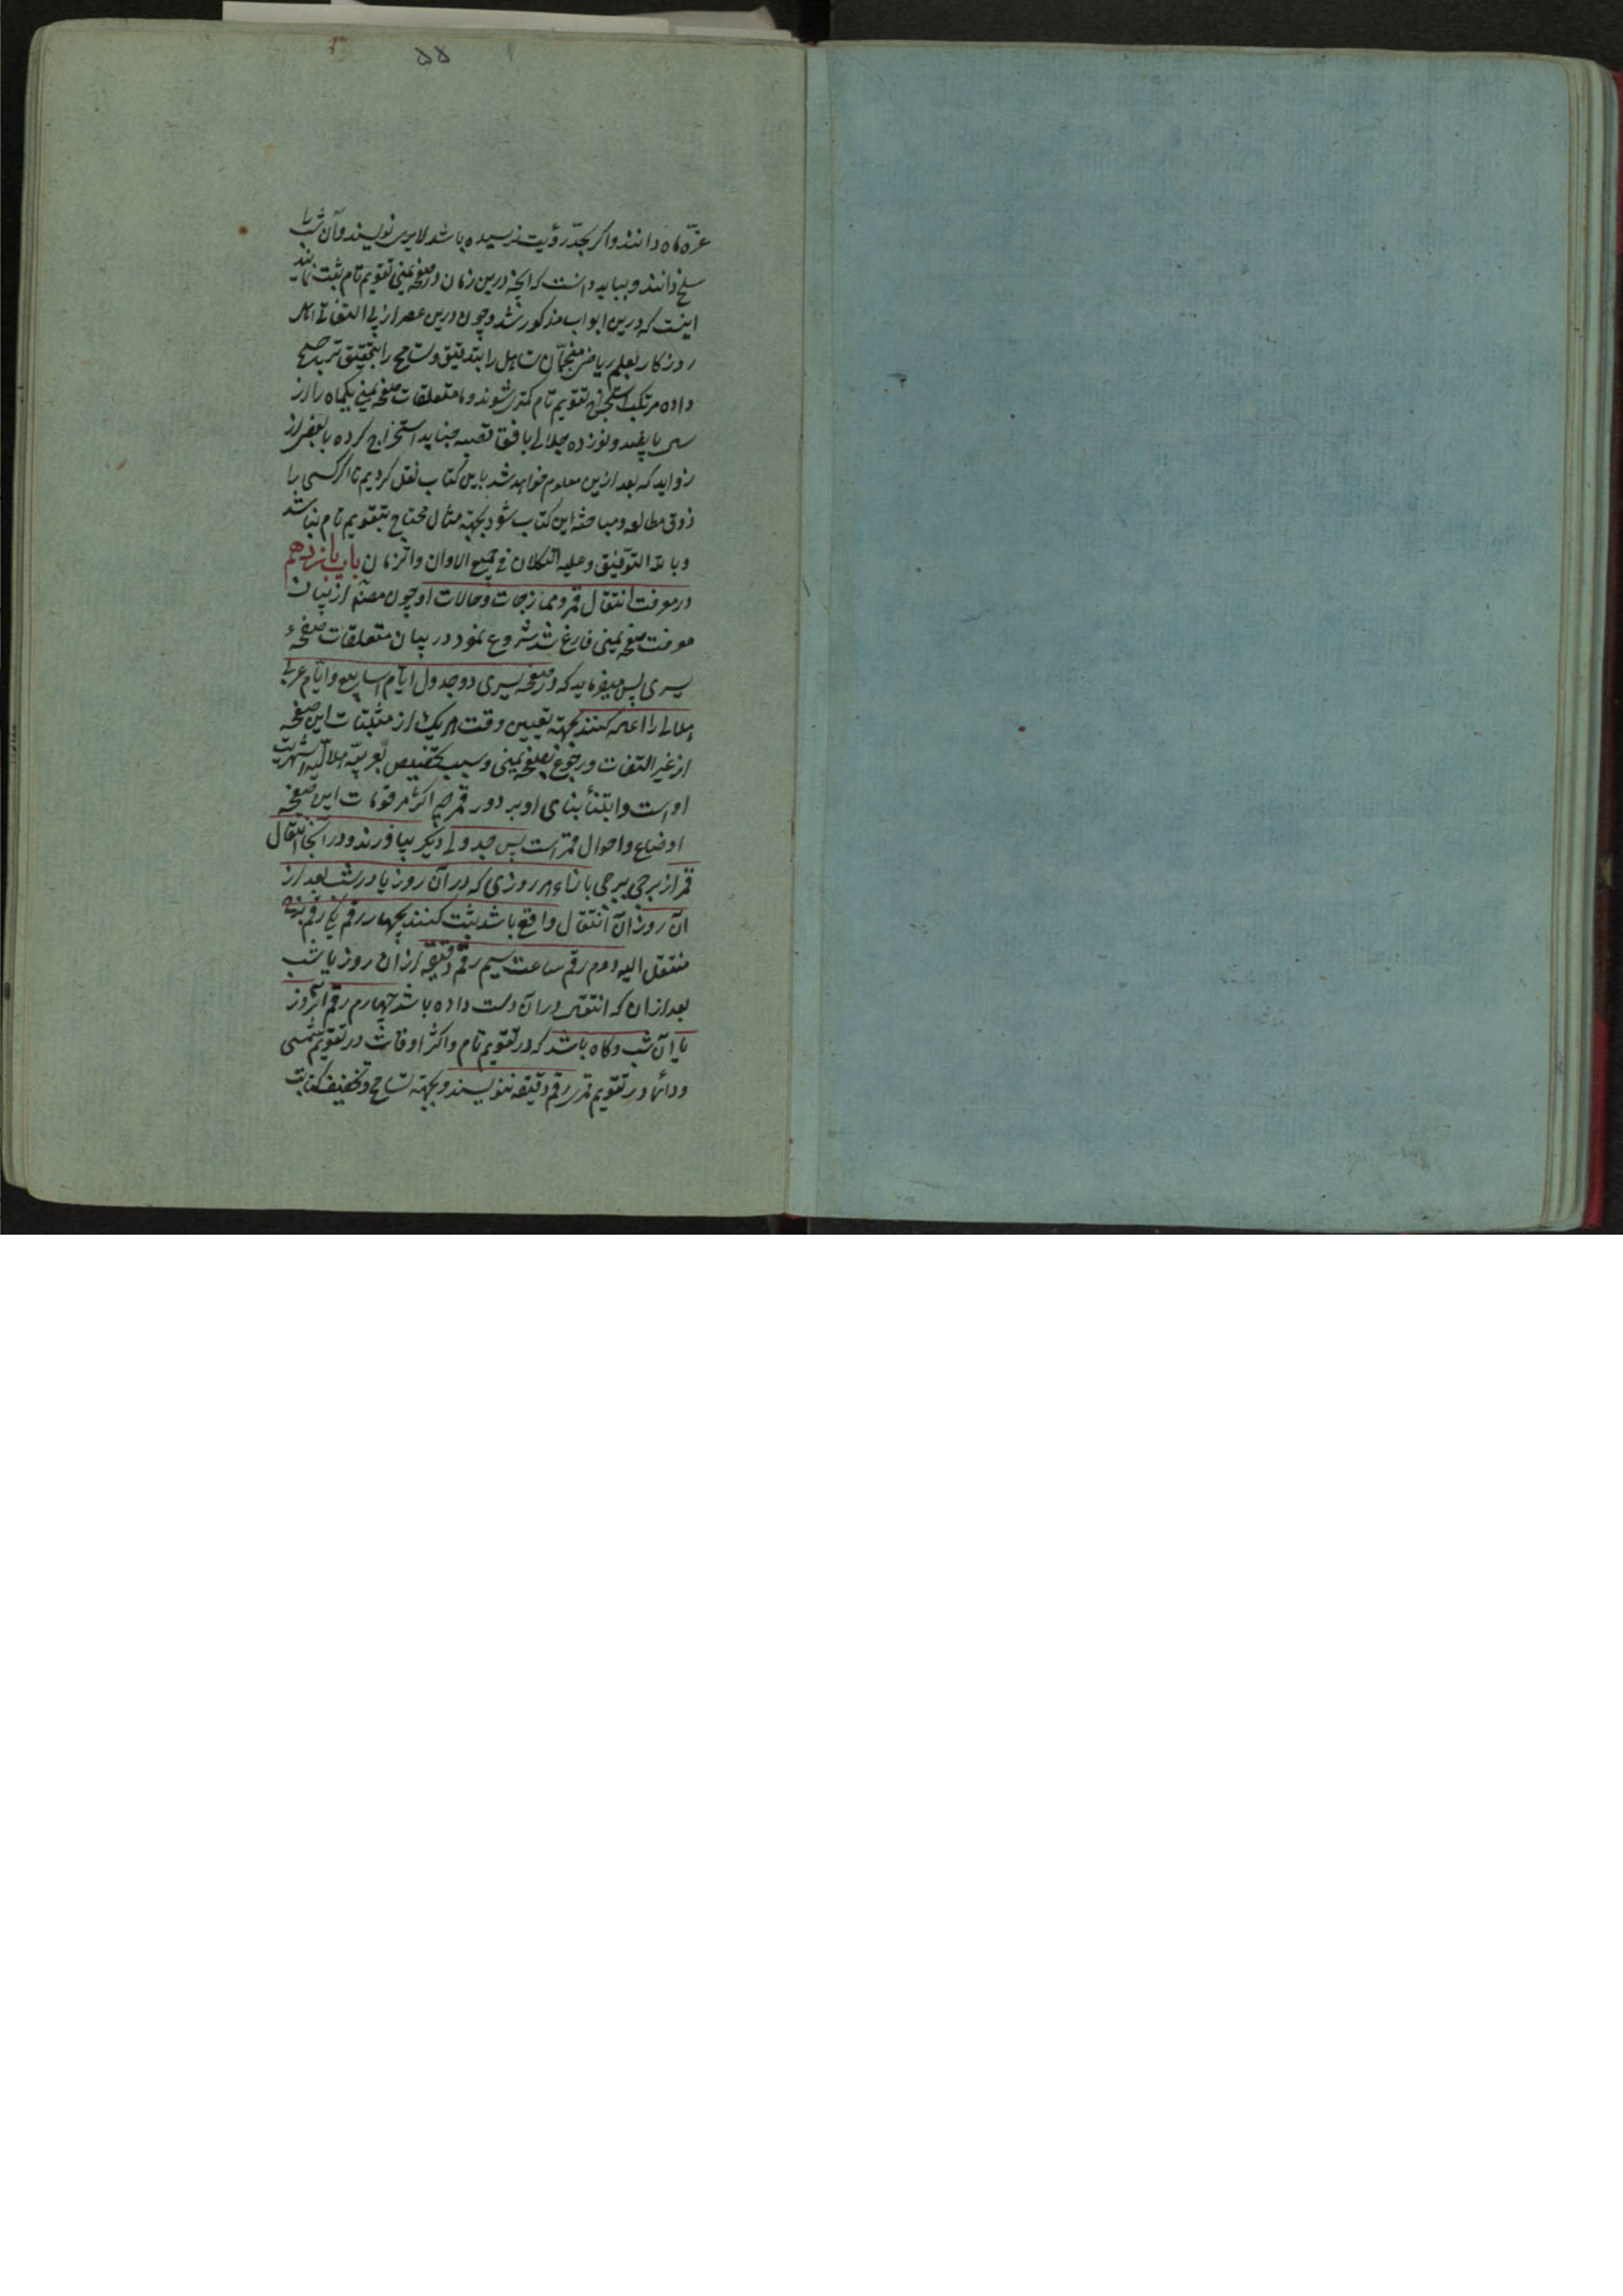 ۵۵
غرّه ماه دانند و اگر بحدّ رؤیت نرسیده باشد لایری نویسند و آن شب را
سلخ دانند و بباید دانست که آنچه درین زمان در صفحه یمنی تقویم تام ثبت نمایند
اینست که درین ابواب مذکور شد و چون درین عصر از بی التفاتی اهل
روزکار بعلم ریاضی منجمّان تساهل را بتدقیق و تسامح را بتحقیق ترجیح
داده مرتکب استخراج تقویم تام کمتر میشوند و ما متعلقات صفحه یمنی یکماه را از
سال پانصد و نوزده جلالی بافق قصبه استخراج کرده با بعضی از
زواید که بعد ازین معلوم خواهد شد باین کتاب نقل کردیم تا اگر کسی را
ذوق مطالعه و مباحثه این کتاب شود بجهة مثال محتاج بتقویم تام نباشد
و بالله التوفیق و علیه التکلان فی جمیع الاوان والزمان باب پانزدهم
در معرفت انتقال قمر و ممازجات و حالات او چون مصنّف از بیان
معرفت صفحه یمنی فارغ شد شروع نمود در بیان متعلقات صفحهٔ
یسری پس میفرماید که در صفحه یسری دو جدول ایام اسابیع و ایّام عربی
هلالی را اعاده کنند بجهة تعیین وقت هر یک از مثبتات این صفحه
از غیر التفات و رجوع بصفحه یمنی و سبب تخصیص بعربیّه هلالیّه شهریت
اوست و ابتناء بنای او بر دور قمر چه اکثر مرقومات این صفحه
اوضاع و احوال قمر است پس جدولی دیگر بیاورند و در آنجا انتقال
قمر از برجی ببرجی بازاء هر روزی که در آن روز یا در شب بعد از
آن روز آن انتقال واقع باشد ثبت کنند بچهار رقم یکی رقم برج
منتقل الیه دوم رقم ساعت سیم رقم دقیقه از آن روز یا شب
بعد از آن که انتقال در آن دست داده باشد چهارم رقم آنروز
یا آن شب و گاه باشد که در تقویم تام و اکثر اوقات در تقویم شمسی
و دائما در تقویم قمری رقم دقیقه ننویسند و بجهة تسامح و تخفیف کتابت